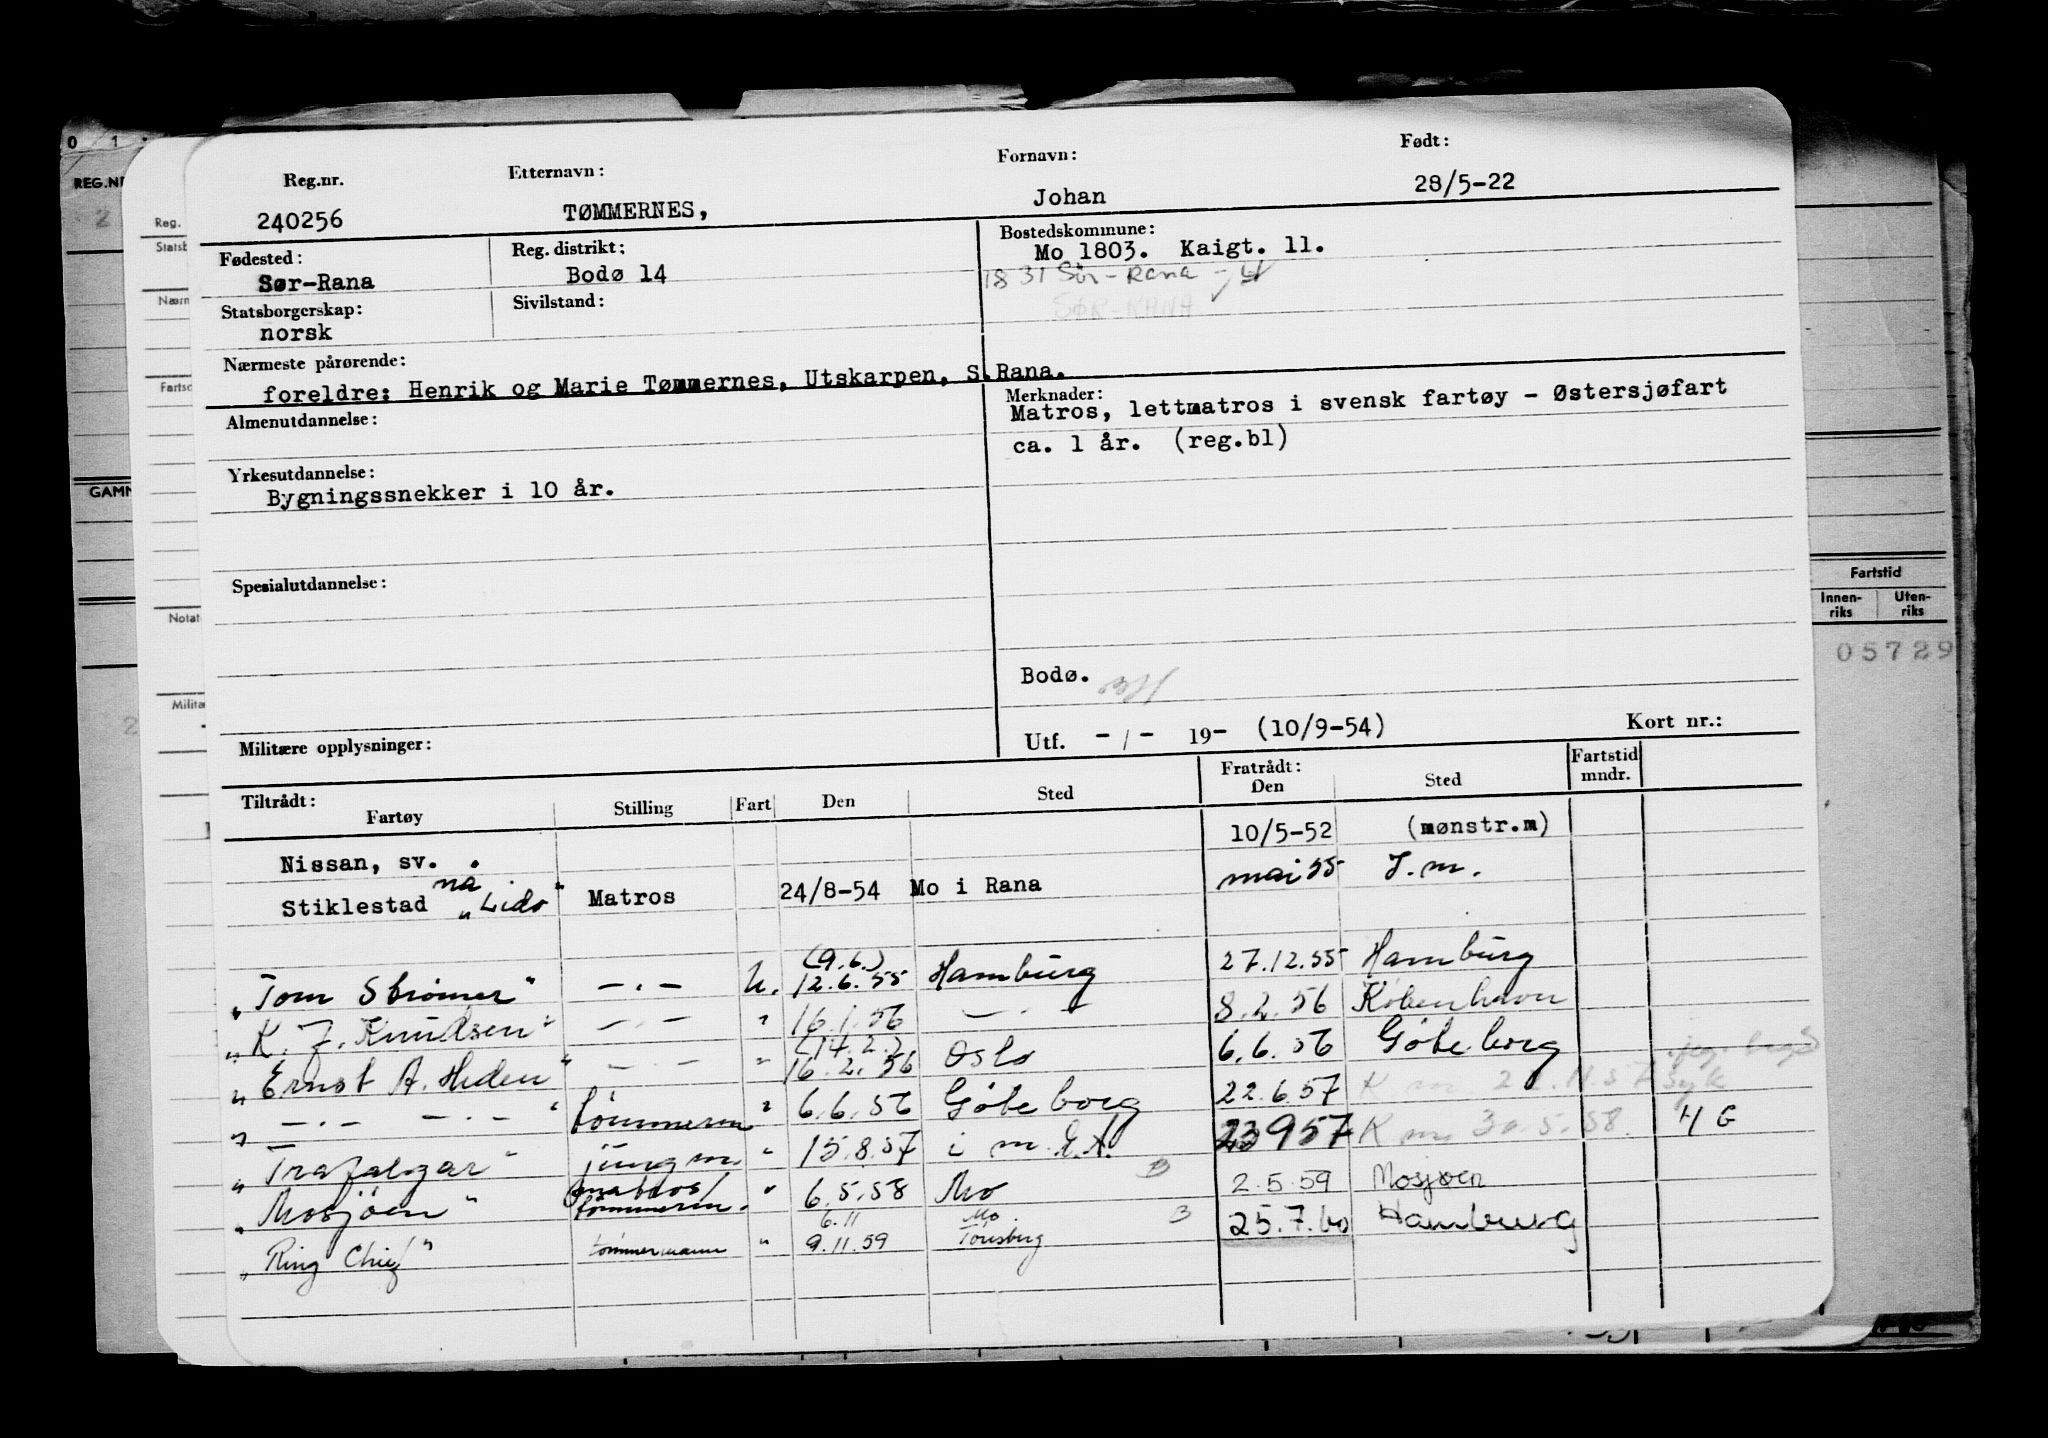 Reg.nr. Etternavn: Fornavn: Født:
240256 TØMMERNES, Johan 28/5-22
Fødested: Reg. distrikt: Bostedskommune:
Sør-Rana Bodø 14 Mo 1803. Kaigt. 11.
1831 Sør-Rana
SØR-RANA
Statsborgerskap: Sivilstand:
norsk
Nærmeste pårørende:
foreldre: Henrik og Marie Tømmernes, Utskarpen, S.Rana.
Almenutdannelse: Merknader:
Matros, lettmatros i svensk fartøy - Østersjøfart
ca. 1 år. (reg.bl)
Yrkesutdannelse:
Bygningssnekker i 10 år.
Spesialutdannelse:
Bodø.
Militære opplysninger: Utf. -/- 19- (10/9-54) Kort nr.:
Tiltrådt: Fratrådt: Fartstid
Fartøy Stilling Fart Den Sted Den Sted mndr.
Nissan, sv. 10/5-52 (mønstr.m)
Stiklestad nå "Lido" Matros 24/8-54 Mo i Rana mai 55 I.m.
(9.6.)
"Tom Strømer" -.- U. 12.6.55 Hamburg 27.12.55 Hamburg
"K. J. Knudsen" -.- " 16.1.56 -.- 8.2.56 København
(14.2.)
"Ernst A. Heden" -.- " 16.2.56 Oslo 6.6.56 Göteborg
" -.- " tömmerm " 6.6.56 Göteborg 22.6.57
"Trafalgar" jungm. " 15.8.57 i m. E.A. 23957 K m. 30.5.58. 4 G
"Mosjöen" matros/tömmerm. " 6.5.58 Mo B 2.5.59 Mosjøen
6.11 Mo
"Ring Chief" tømmermann " 9.11.59 Tønsberg B 25.7.60 Hamburg
REG.NR
Fartstid
Innen-riks Uten-riks
05729